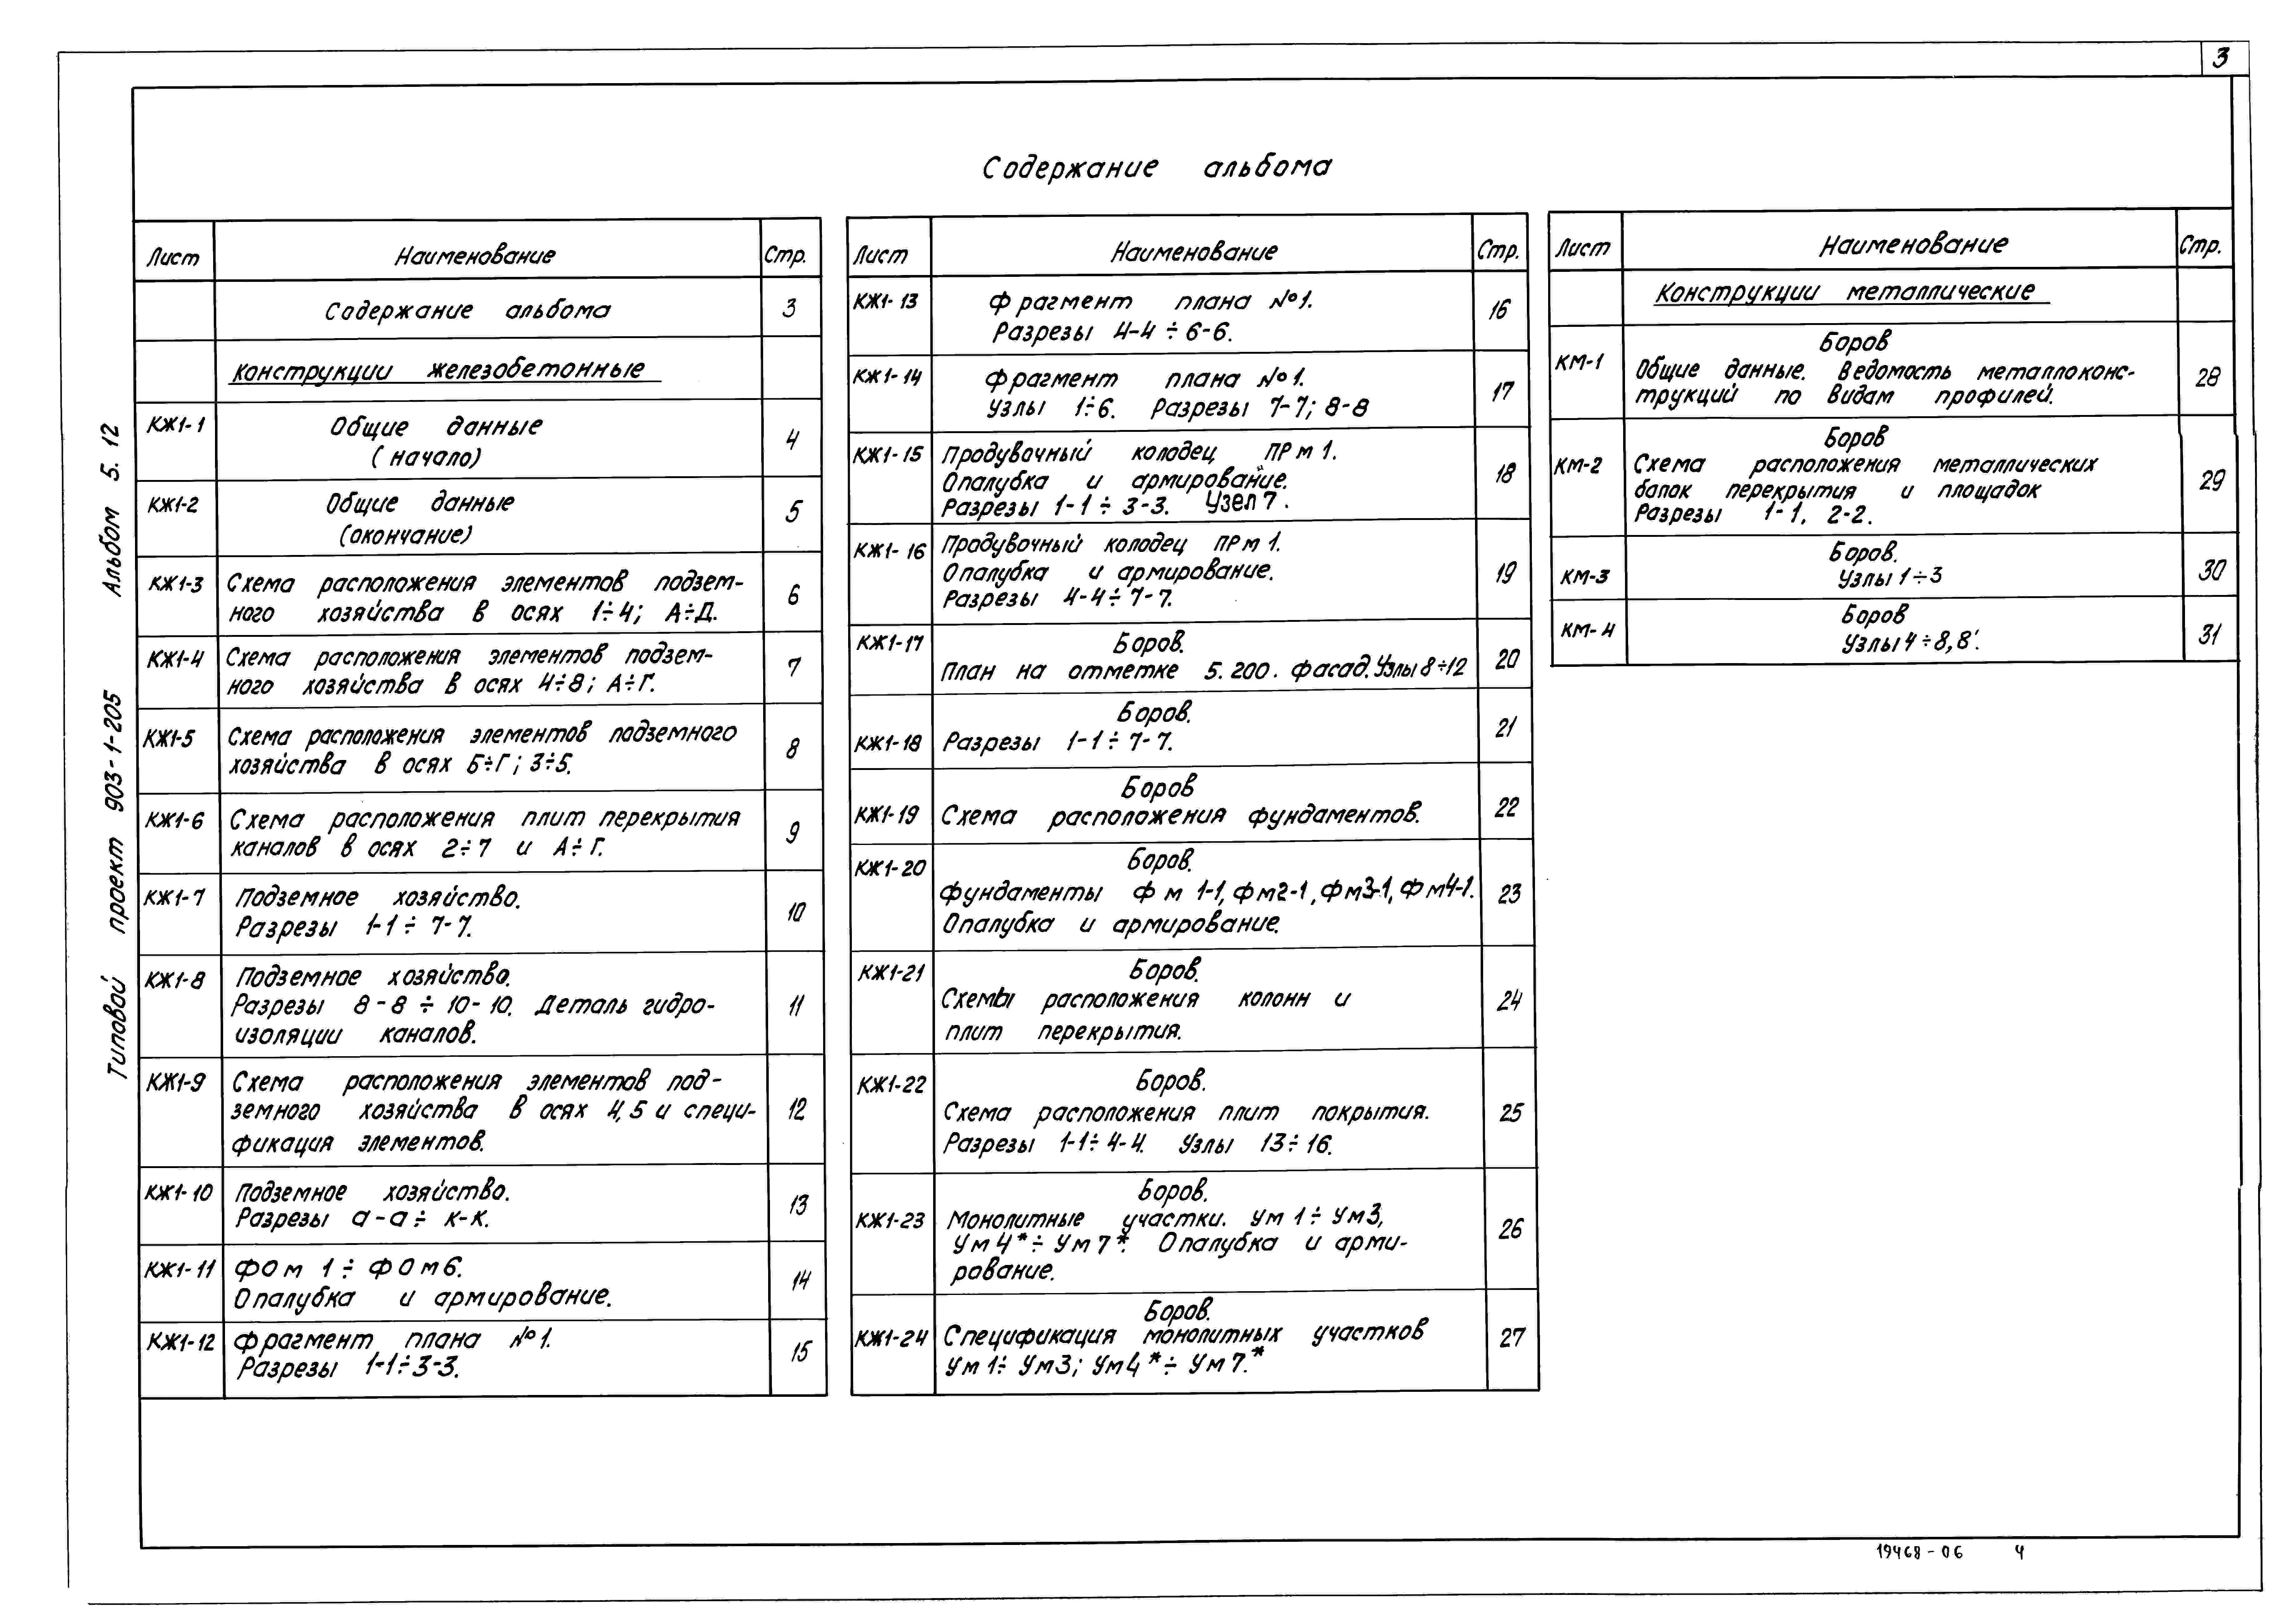 3
Содержание альбома
Типовой проект 903-1-205 Альбом 5.12
Лист Наименование Стр.
Содержание альбома 3
Конструкции железобетонные
КЖ1-1 Общие данные
(начало) 4
КЖ1-2 Общие данные
(окончание) 5
КЖ1-3 Схема расположения элементов подзем-
ного хозяйства в осях 1÷4; А÷Д. 6
КЖ1-4 Схема расположения элементов подзем-
ного хозяйства в осях 4÷8; А÷Г. 7
КЖ1-5 Схема расположения элементов подземного
хозяйства в осях Б÷Г; 3÷5. 8
КЖ1-6 Схема расположения плит перекрытия
каналов в осях 2÷7 и А÷Г. 9
КЖ1-7 Подземное хозяйство.
Разрезы 1-1÷7-7. 10
КЖ1-8 Подземное хозяйство.
Разрезы 8-8÷10-10. Деталь гидро-
изоляции каналов. 11
КЖ1-9 Схема расположения элементов под-
земного хозяйства в осях 4,5 и специ-
фикация элементов. 12
КЖ1-10 Подземное хозяйство.
Разрезы а-а÷к-к. 13
КЖ1-11 ФОм 1÷ФОм6.
Опалубка и армирование. 14
КЖ1-12 Фрагмент плана №1.
Разрезы 1-1÷3-3. 15
Лист Наименование Стр.
КЖ1-13 Фрагмент плана №1.
Разрезы 4-4÷6-6. 16
КЖ1-14 Фрагмент плана №1.
Узлы 1÷6. Разрезы 7-7; 8-8 17
КЖ1-15 Продувочный колодец ПРм1.
Опалубка и армирование.
Разрезы 1-1÷3-3. Узел 7. 18
КЖ1-16 Продувочный колодец ПРм1.
Опалубка и армирование.
Разрезы 4-4÷7-7. 19
КЖ1-17 Боров.
План на отметке 5.200. Фасад. Узлы 8÷12 20
Боров.
КЖ1-18 Разрезы 1-1÷7-7. 21
Боров
КЖ1-19 Схема расположения фундаментов. 22
КЖ1-20 Боров.
Фундаменты Фм1-1, Фм2-1, Фм3-1, Фм4-1.
Опалубка и армирование. 23
КЖ1-21 Боров.
Схемы расположения колонн и
плит перекрытия. 24
КЖ1-22 Боров.
Схема расположения плит покрытия.
Разрезы 1-1÷4-4. Узлы 13÷16. 25
Боров.
КЖ1-23 Монолитные участки. Ум1÷Ум3,
Ум4*÷Ум7*. Опалубка и арми-
рование. 26
Боров.
КЖ1-24 Спецификация монолитных участков
Ум1÷Ум3; Ум4*÷Ум7.* 27
Лист Наименование Стр.
Конструкции металлические
КМ-1 Боров
Общие данные. Ведомость металлоконс-
трукций по видам профилей. 28
КМ-2 Боров
Схема расположения металлических
балок перекрытия и площадок
Разрезы 1-1, 2-2. 29
Боров.
КМ-3 Узлы 1÷3 30
КМ-4 Боров
Узлы 4÷8,8'. 31
19468-06 4